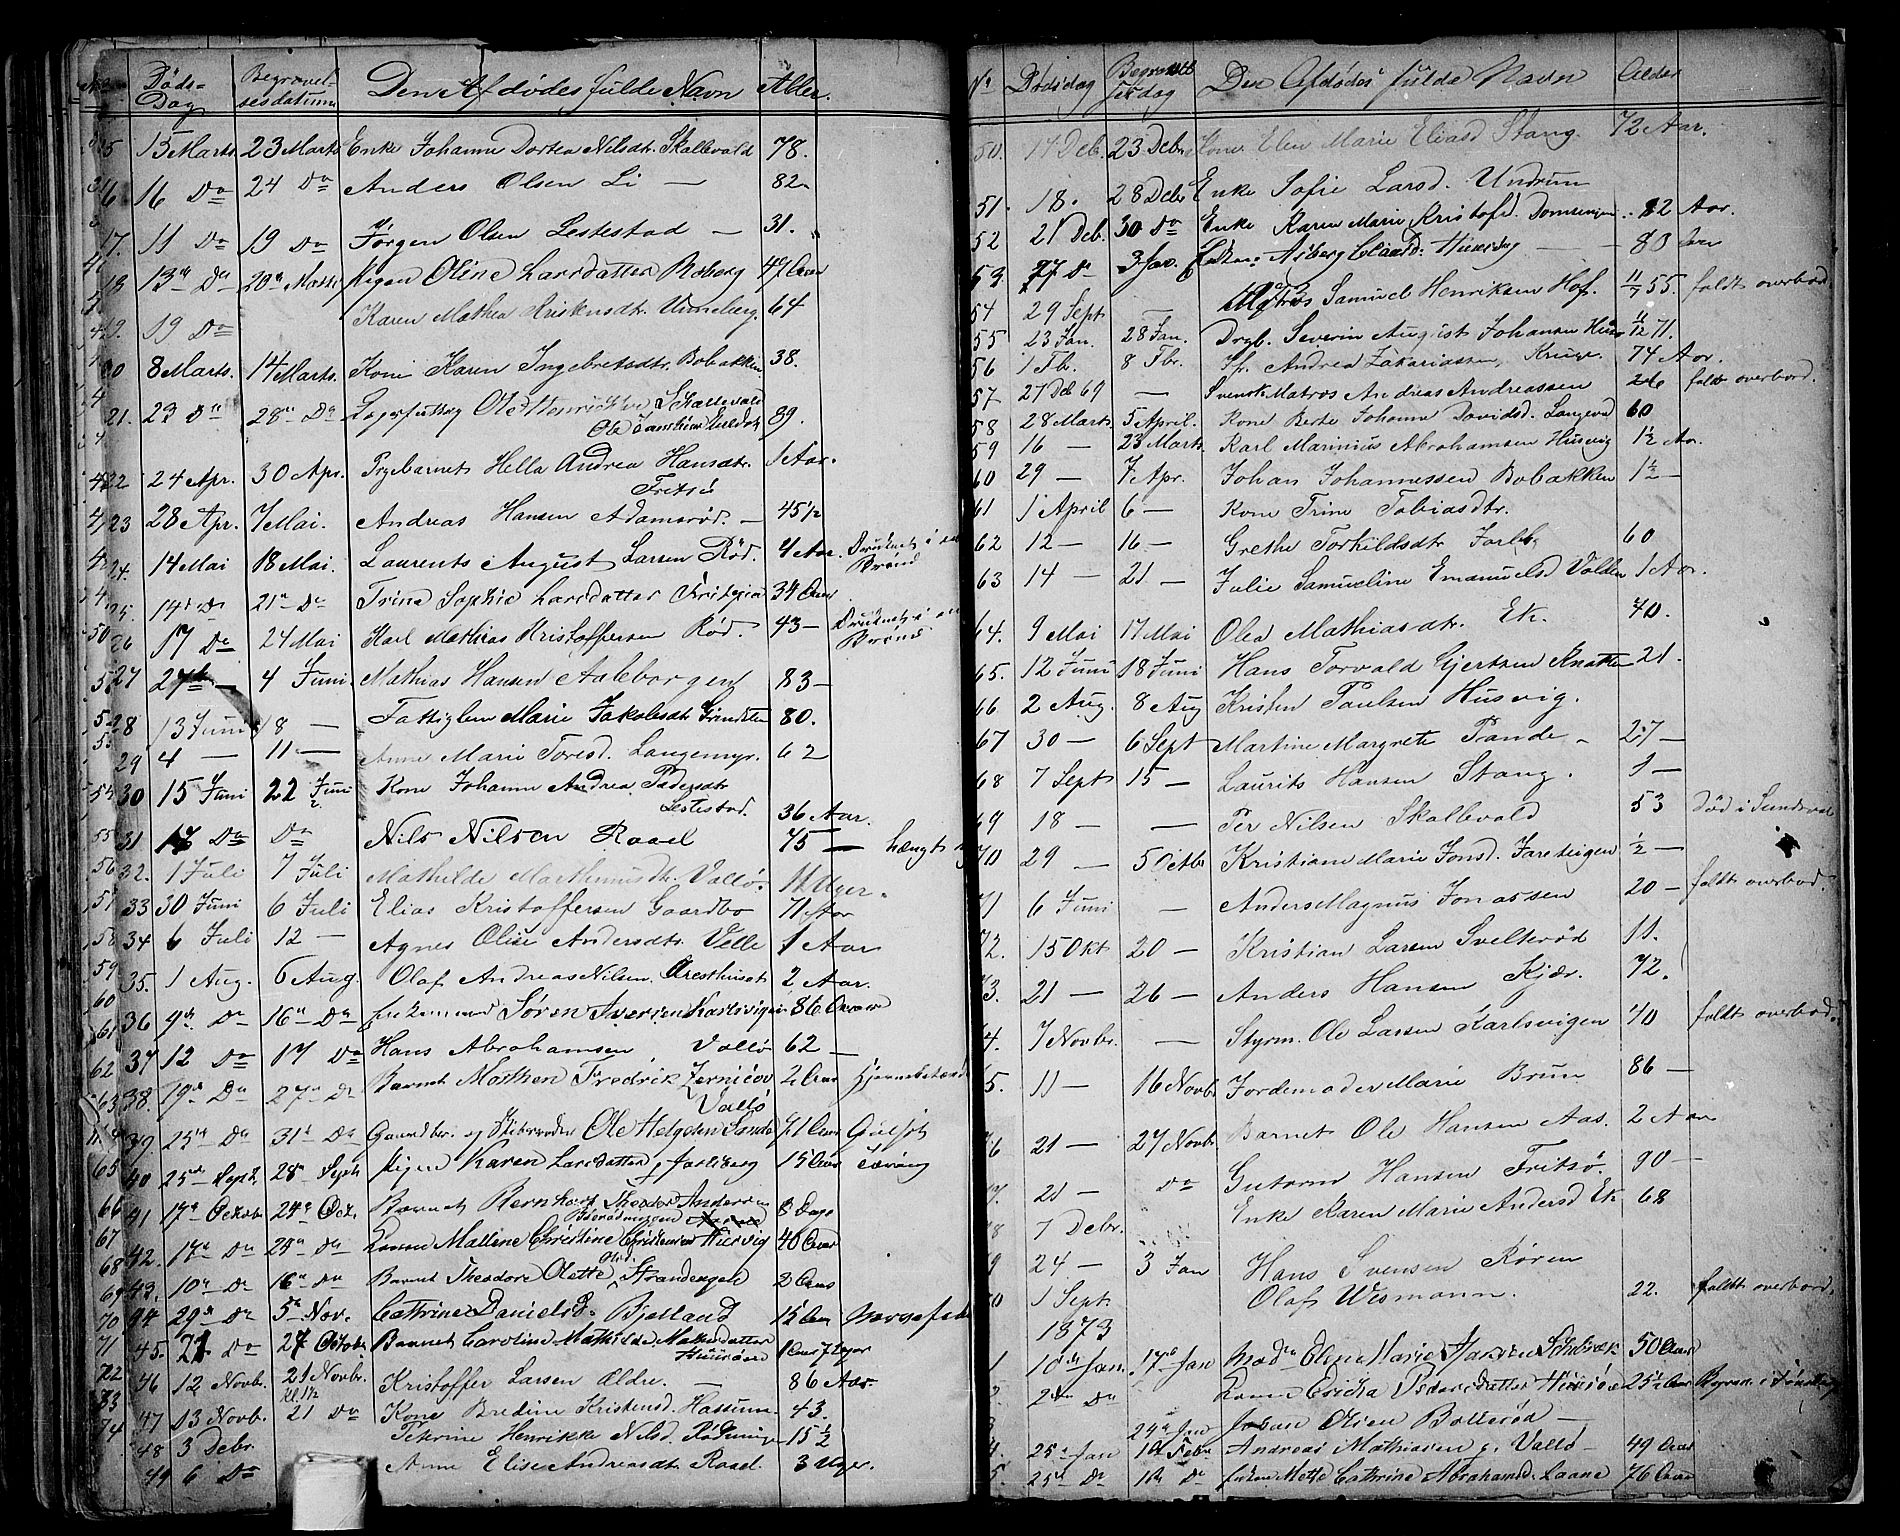 Døds-Dag Begravelsesdatum Den Afdødes fulde Navn Alder
15 Marts. 23 Marts Enke Johanne Dortea Nilsdt. Skallevald 78.
16 Do 24 Do Anders Olsen Li — 82
17. 11 Do 19 Do Jørgen Olsen Lestestad — 31.
18 13de Do 20de Marts Pigen Oline Larsdatter Roberg 47 Aar
19 Do Karen Mathea Kristensdt. Unneberg. 64
20 8 Marts. 14 Marts. Kone Karen Ingebretsdtr. Bobakken 38.
21. 23 Do 28de Do Skallevald
89.
22 24 Apr. 30 Apr. Pigebarnet Hella Andrea Hansdtr. 1 Aar.
Fritsø
23 28 Apr. 7 Mai. Andreas Hansen Adamsrød. — 45 1/2
24. 14 Mai 18 Mai. Laurents August Larsen Rød. 4 Aar. Druknet i en Brønd
25. 14de Do 21de Do Trina Sophie Larsdatter 34 Aar
26 17 Do 24 Mai Karl Mathias Kristoffersen Rød. 43 — Druknet i en Brønd
27 27 — 4 Juni. Mathias Hansen Aaleborgen 83 —
28 13 Juni 18 — Fattiglem Marie Jakobsdt. Grindsten 80.
29 4 — 11 — Anne Marie Toresd. Langemyr. 62
30 15 Juni 22 Juni Kone Johanne Andrea Pedersdtr
Lestestad. 36 Aar.
31 17 Do Do Nils Nilsen Raael 75 — hængt
32. 1 Juli 7 Juli Mathilde Marthinusdtr. Vallø. 11 Uger.
33 30 Juni 6 Juli Elias Kristoffersen Gaardbo 71 Aar
34 6 Juli 12 — Agnes Olise Andersdtr. Velle 1 Aar
35. 1 Aug. 6 Aug. Olaf Andreas Nilsen. Presthuset 2 Aar.
36 9de Do 16de Do Enkemand Søren Iversen Karlsvigen 86 Aar
37 12 Do 17 Do Hans Abrahamsen, Vallø 62 —
38. 19de Do 27de Do Barnet Morthen Fredrik 2 Aar
Vallø
39. 25de Do 31te Do Gaardbr. og Skibsreder Ole Helgesen Sande 71 Aar Gulsot
40 25de Septb. 28de Septb. Pigen Karen Larsdatter, Jarlsberg 15 Aar Tæring
41 17de Octob. 24de Oct. Barnet Bernhart Theodor Andersen 8 Dage
42. 17de Do 25de Do Konen Mallene Christine Christensen Husvig 40 Aar
43. 10de Do 16de Do Barnet Theodore Olette Olsd. Strandengen 2 Aar
44 29de Do 5te Nov. Cathrine Danielsd. Bjelland 15 Aar Nervefeber
45. 21 Do 27 Octobr. Barnet Caroline Mathilde 1 Aar 7 Uger
46 12 Novb. 21 Novbr. Kristoffer Larsen Eldre. — 86 Aar.
47 13 Novb. 21 Do Kone Bredine Kristensd. Hassum. 43.
48 3 Debr. Pekrine Henrikke Nilsd. Rødningen 15 1/2
49 6 Do Anne Elise Andreasdt. Raael. 3 Uger.
No Dødsdag Begravelsesdag Den Afdødes fulde Navn Alder
50. 14 Deb. 23 Debr. Kone Elen Marie Eliasd Stang. 72 Aar.
51. 18. 28 Debr Enke Sofie Larsd. Undrum
52 21 Deb. 30 Do Enke Karen Marie Kristofd. Domsengen. 82 Aar.
53. 27 Do 3 Jan. Enken Asberg Claasd. Husvig — 80 Aar
54 29 Sept — Matros Samuel Henriksen Hof. 11/7 55. faldt overbord
55 23 Jan. 28 Jan. Drgb. Severin August Johansen Husø 11/12 71.
56 1 Fbr. 8 Fbr. Sp. Andrea Zakariassen, Kruge. 74 Aar.
57 27 Dec 69 — Svensk Matros Andreas Andreassen 26 faldt overbord.
58 28 Marts 5 April. Kone Berte Johanne Davidsd. Langevd 60
59 16 — 23 Marts. Karl Marinius Abrahamsen Husvig 1 1/2 Aar.
60 29 — 7 Apr. Johan Johannessen Bobakken 1 1/2 —
61 1 April 6 — Kone Trine Tobiasdtr.
62 12 — 16 — Grethe Torkildsdtr Jarlsb. 60
63 14 — 21 — Julie Samueline Emanuelsd Volden 1 Aar.
64. 9 Mai 17 Mai Olea Mathiasdtr. Ek. 40.
65. 12 Juni 18 Juni Hans Torvald Gjertsen Knatten 21.
66 2 Aug. 8 Aug Kristen Paulsen Husvig.
67 30 — 6 Sept Martine Margrete Trande — 27 —
68 7 Sept 15 — Laurits Hansen Stang. 1 —
69 18 — — Per Nilsen Skallevald 53 Død i Sundsval
70 29 — 5 Octbr Kristiane Marie Jonsd. Fareteigen 1/2 —
71 6 Juni — Anders Magnus Jonassen 20 — faldt overbord.
72. 15 Okt 20 — Kristian Larsen Svelterød 11.
73. 21 — 26 — Anders Hansen Kjær. 72.
4. 7 Novbr. — Styrm. Ole Larsen Karlsvigen 40 faldt overbord.
5. 11 — 16 Novbr Jordemoder Marie Brun 86 —
6 21 — 27 Novbr Barnet Ole Hansen Aas. 2 Aar
7. 21 — Do Gutorm Hansen Fritsø. 90 —
8 7 Debr. Enke Karen Marie Andersd Ek 68
9 24 — 3 Jan Hans Svensen Røren
1 Sept. Olaf Wismann. 22. faldt overbord.
1873
1 10de Jan. 17de Jan Mad. Elen Marie Hansen 50 Aar
2. Do Konen Ericka Pedersdatter Husøen 25 1/2 Aar
3 24de Jan Johan Olsen Bollerød —
4. 25de Jan 1ste Febr. Andreas Mathiasen p. Vallø — 49 Aar
5. 25de Do 1ste Do Enken Mette Cathrine Abrahamsd. Laane 76 Aar